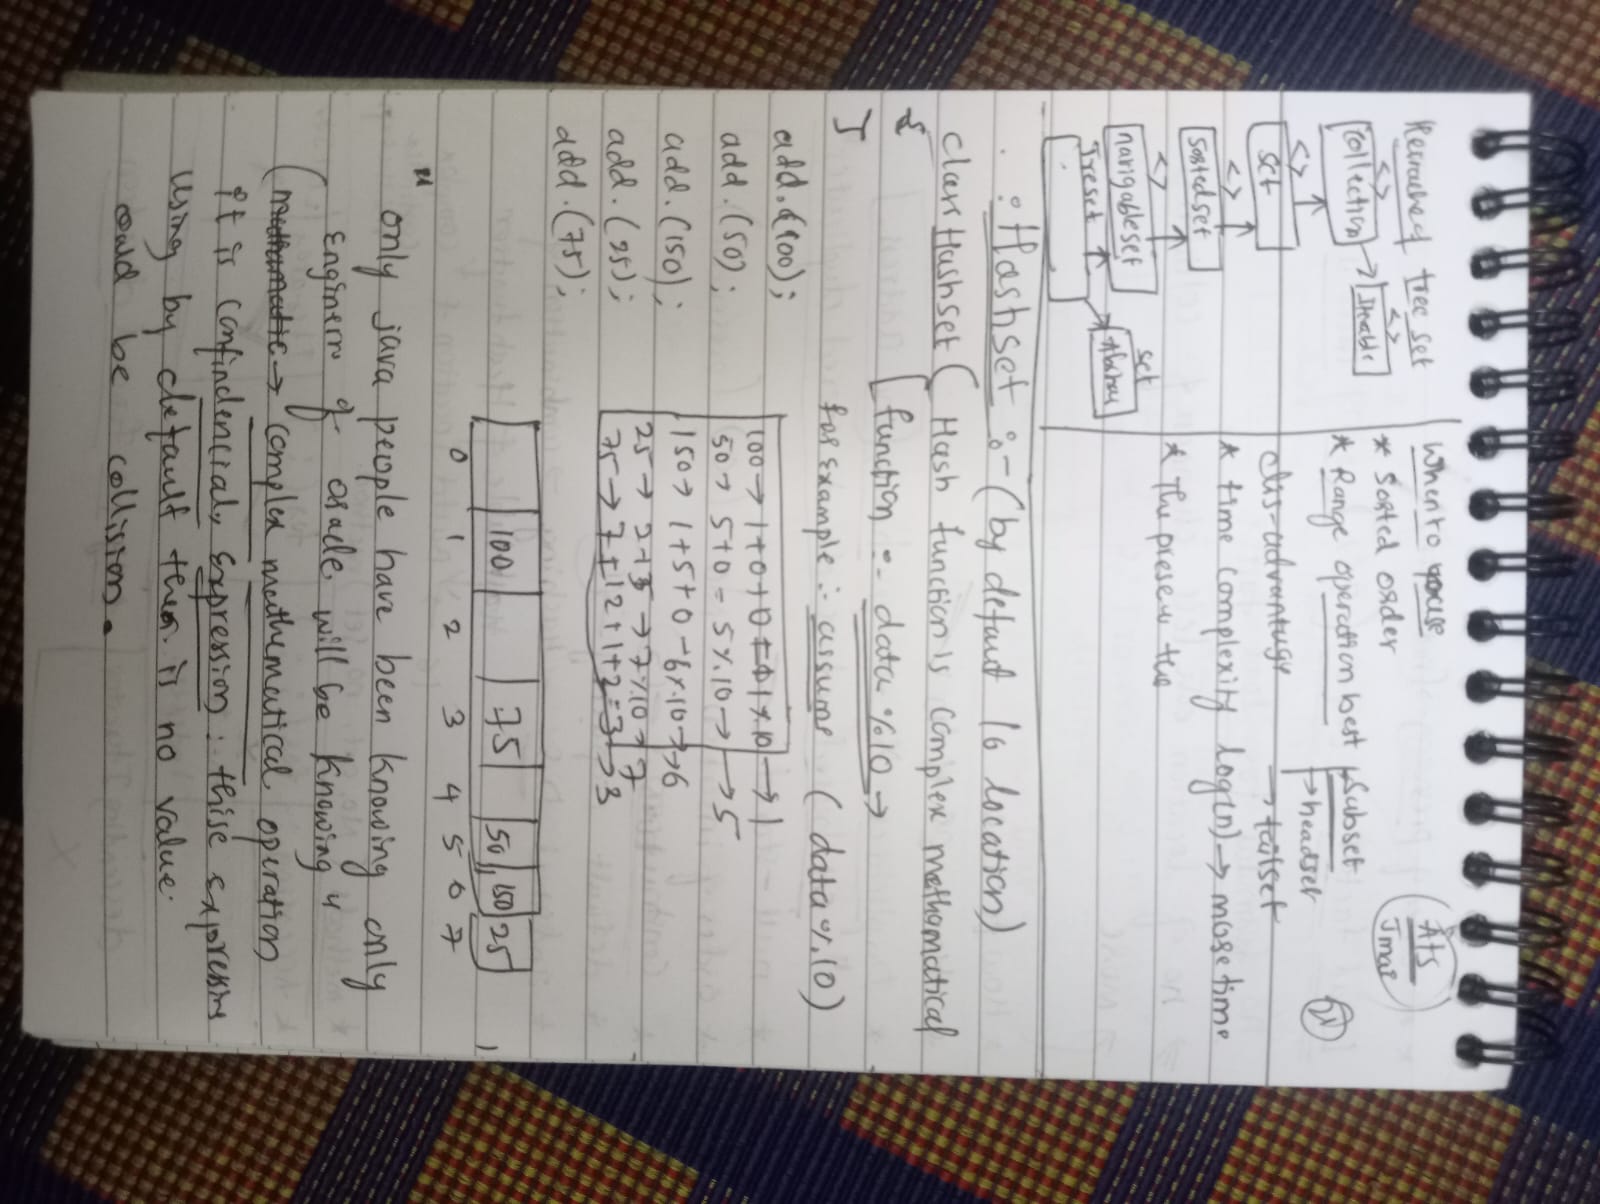 Reurached tree set
<>
Collection → Iterable
<>
<>
Set
<>
Sortedset
<>
navigableset
Treset
set
Abstrac
When to use
* Sorted order
* Range operation best → Subset
→ headset
→ tailset
dis-advantuge
* time complexity log(n) → more time
* The presew the
Ats
Jmap
: Hashset :- (by defaut 16 location)
class Hashset ( Hash function is complex methamatical
{ function :- data % 10 →
} for example : assume (data % 10)
add.(100); 100 → 1+0+0 1%10 → 1
add.(50); 50 → 5+0 = 5%10 → 5
add.(150); 150 → 1+5+0 - 6%10 → 6
add.(25); 25 → 2+5 → 7%10 → 7
add.(75); 75 → 7+12+1+2=3 → 3
100 75 50 150 25
0 1 2 3 4 5 6 7
" only java people have been knowing only
Enginern of oracle will be knowing "
(mathamatic → complex mathematical opuration
it is confindencial, Expression : thise expressin
using by default then is no value.
could be collision.